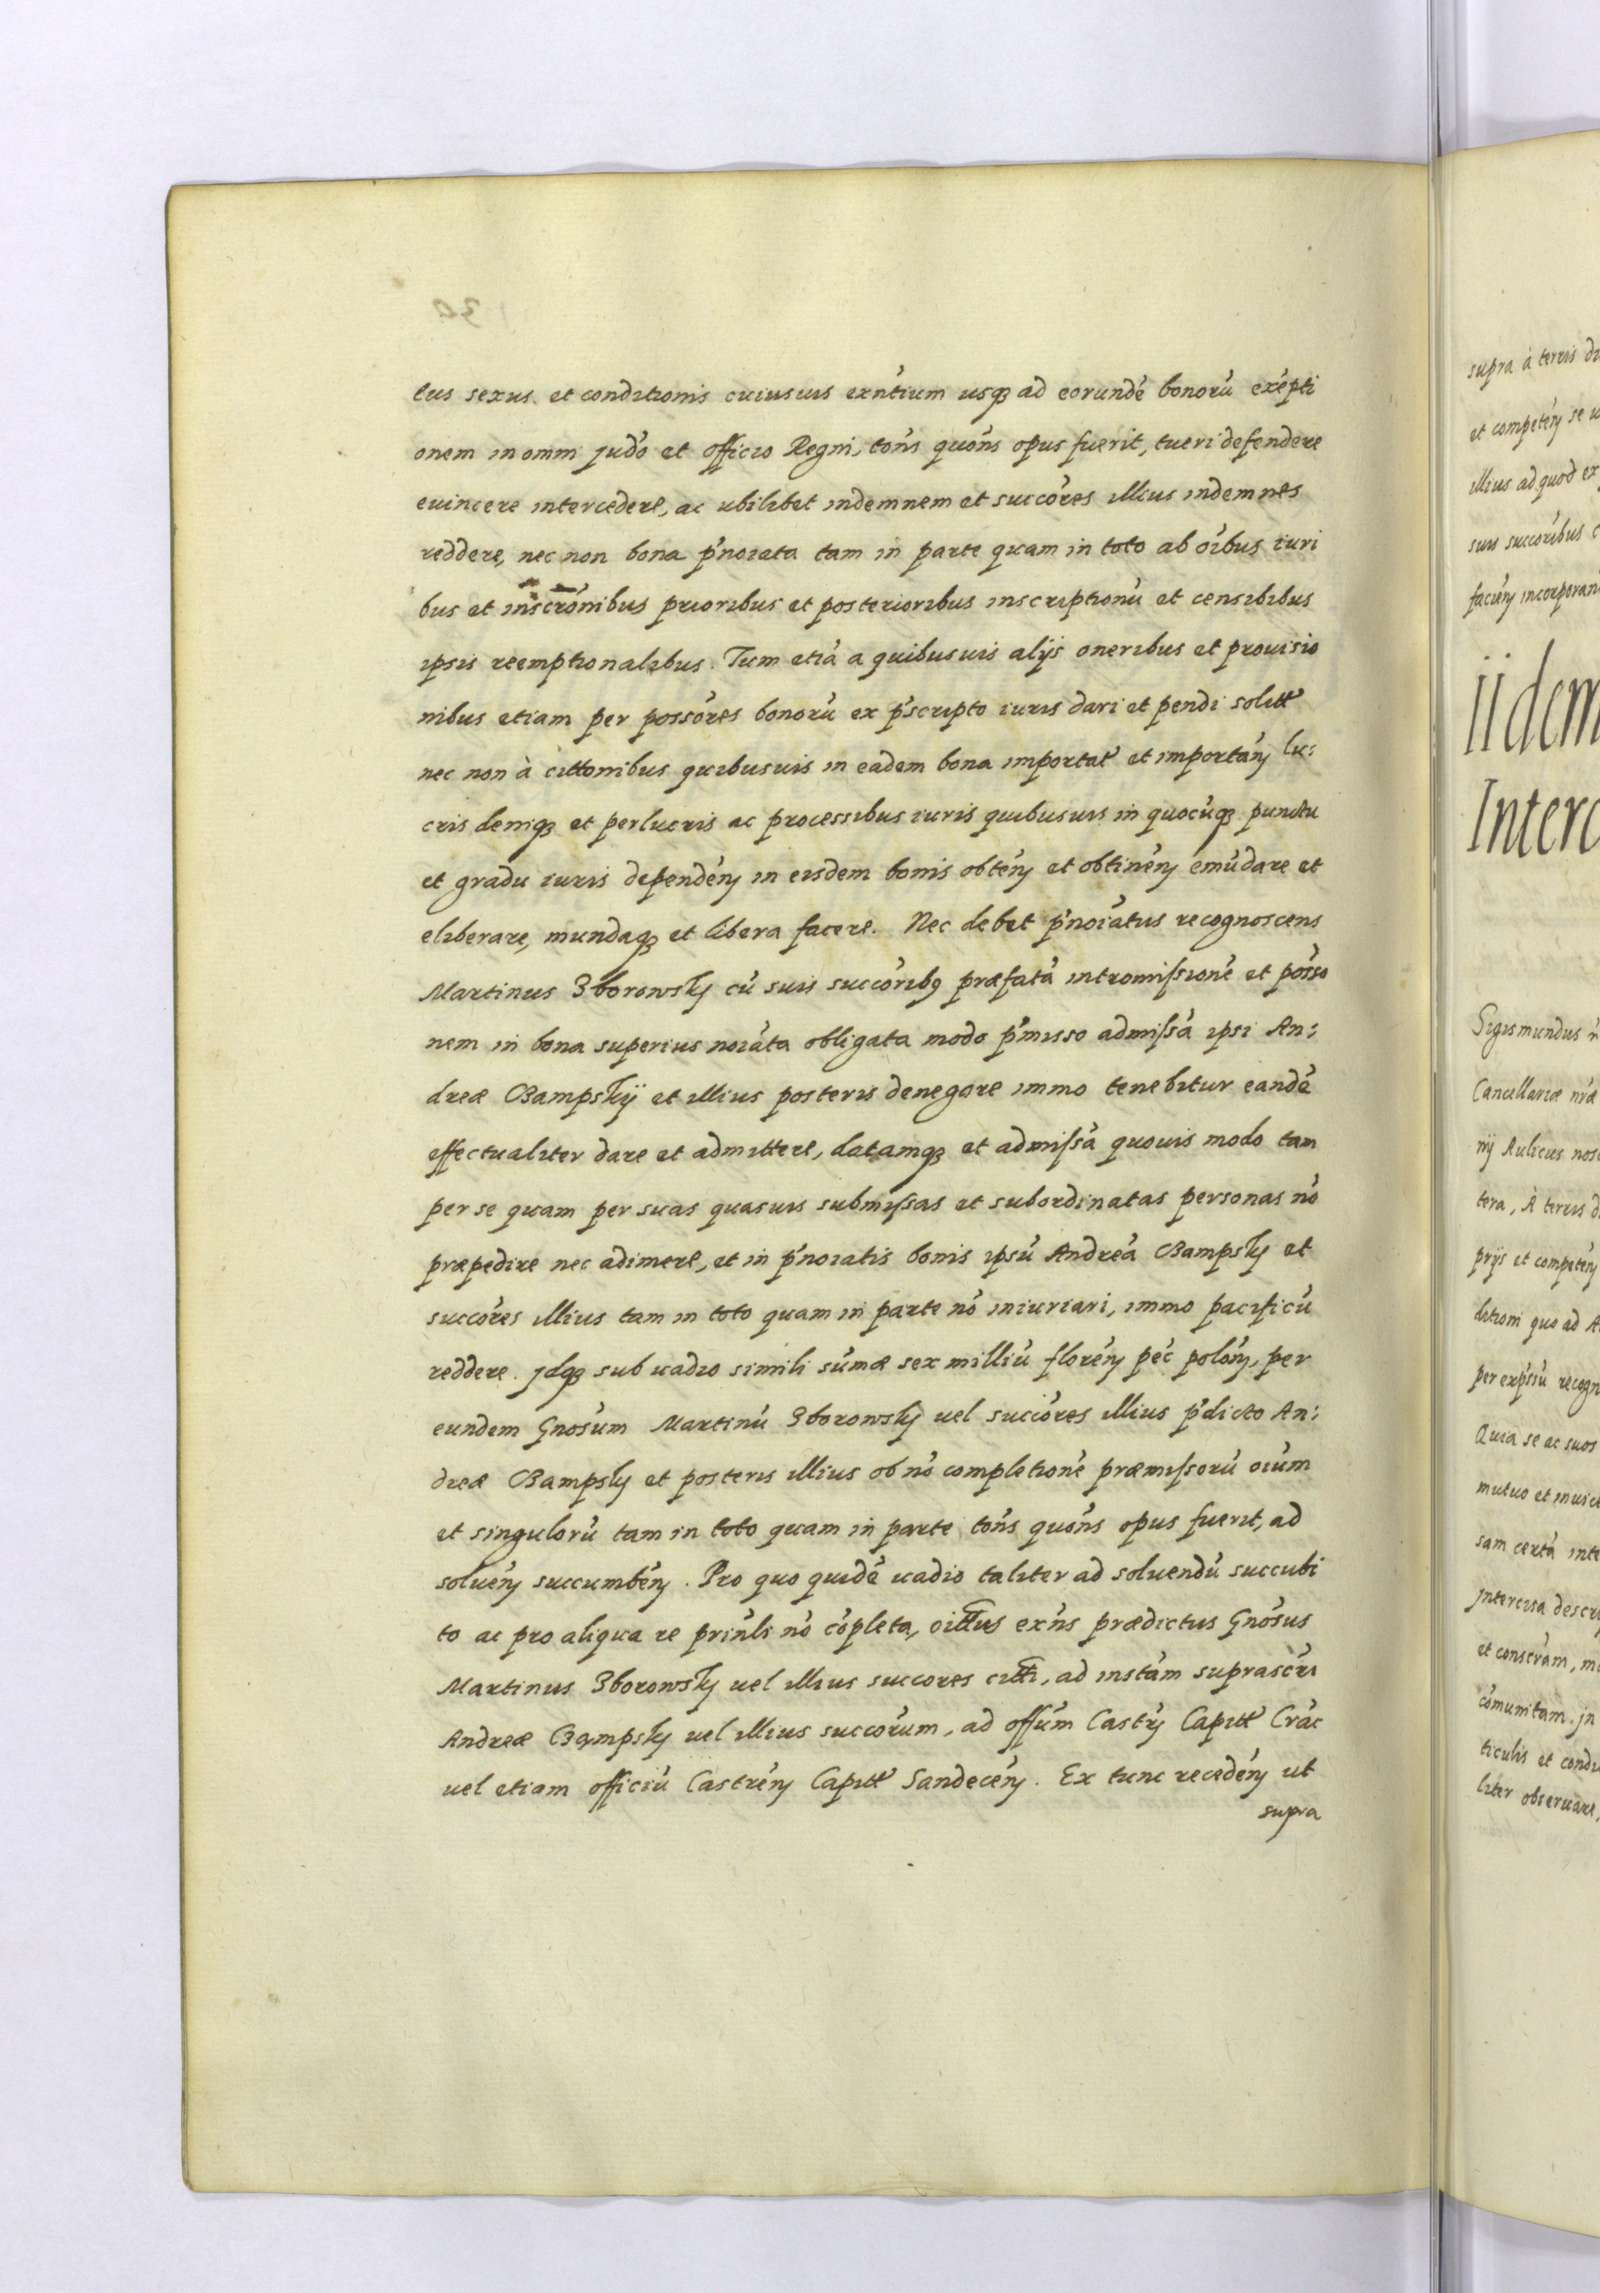 tus sexus. et conditionis cuiusuis exn̄tium usqꝫ ad eorundē bonorū exēpti
onem in omni judō et officio Regni, tōns quōns opus fuerit, tueri defendere
euincere intercedere, ac ubilibet indemnem et succōres illius indemnes
reddere, nec non bona p̄noiata tam in parte quam in toto ab oībus iuri
bus et inscrōnibus prioribus et posterioribus inscriptionū et censibibus
ipsis reemptionalibus. Tum etiā a quibusuis alijs oneribus et prouisio
nibus etiam per possōres bonorū ex p̄scripto iuris dari et pendi solitt
nec non à cittonibus quibusuis in eadem bona importat et importān̄ lu:
cris deniqꝫ et perlucris ac processibus iuris quibusuis in quocūqꝫ punctu
et gradu iuris dependēn̄ in eisdem bonis obtēn̄ et obtinēn̄ emūdare et
eliberare, mundaqꝫ et libera facere. Nec debet p̄noiātus recognoscens
Martinus Zborowsky cū suis succōribꝰ præfatā intromissionē et pōsso
nem in bona superius noiāta obligata modo p̄misso admissā ipsi An:
dreæ Bampskÿ et illius posteris denegare immo tenebitur eandē
effectualiter dare et admittere, datamqꝫ et admissā quouis modo tam
per se quam per suas quasuis submissas et subordinatas personas nō
præpedire nec adimere, et in p̄noiatis bonis ipsū Andreā Bampsky et
succōres illius tam in toto quam in parte nō iniuriari, immo pacificū
reddere. jdqꝫ sub uadio simili sūmæ sex milliū florēn̄ pēc polōn̄, per
eundem Gnōsum Martinū Zborowsky uel succōres illius p̄dicto An:
dreæ Bampsky et posteris illius ob nō completionē præmissorū oiūm
et singulorū tam in toto quam in parte tōns quōns opus fuerit, ad
soluēn̄ succumbēn̄. Pro quo quidē uadio taliter ad soluendū succubi
to ac pro aliqua re prin̄li nō cōpleta, oittus exn̄s prædictus Gnōsus
Martinus Zborowsky uel illius succores citti, ad instām suprascri
Andreæ Bampsky uel illius succōrum, ad offūm Castrn̄ Capitt Crāc
uel etiam officiū Castrēn̄ Capitt Sandecēn̄. Ex tunc recedēn̄ ut
supra
supra à terris
et competēn̄ se
illius ad quod
suis succōribus
faciēn̄
iidem
Sigismundus
Cancellariæ nrāe
nij Aulicus
tera, A terris
prijs et competēn̄
quo ad
per
Quia se ac suos
mutuo et
sam certā
jntercisa
et
cōmunitam. jn
ticulis et
liter obseruare,